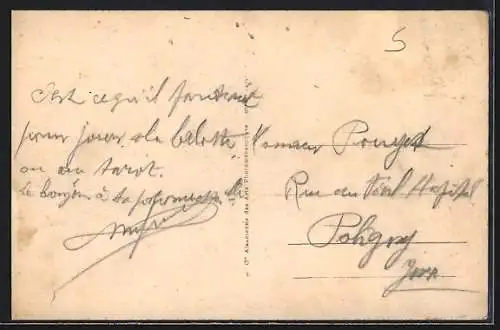 5
C'est ce qu'il faudrait
pour jouer à la belotte
ou au tarot.
Le bonjour à ta
Monsieur Pouyet
Rue du Vieil Hopital
Poligny
Jura
Cie Alsacienne des Arts Photomécaniques